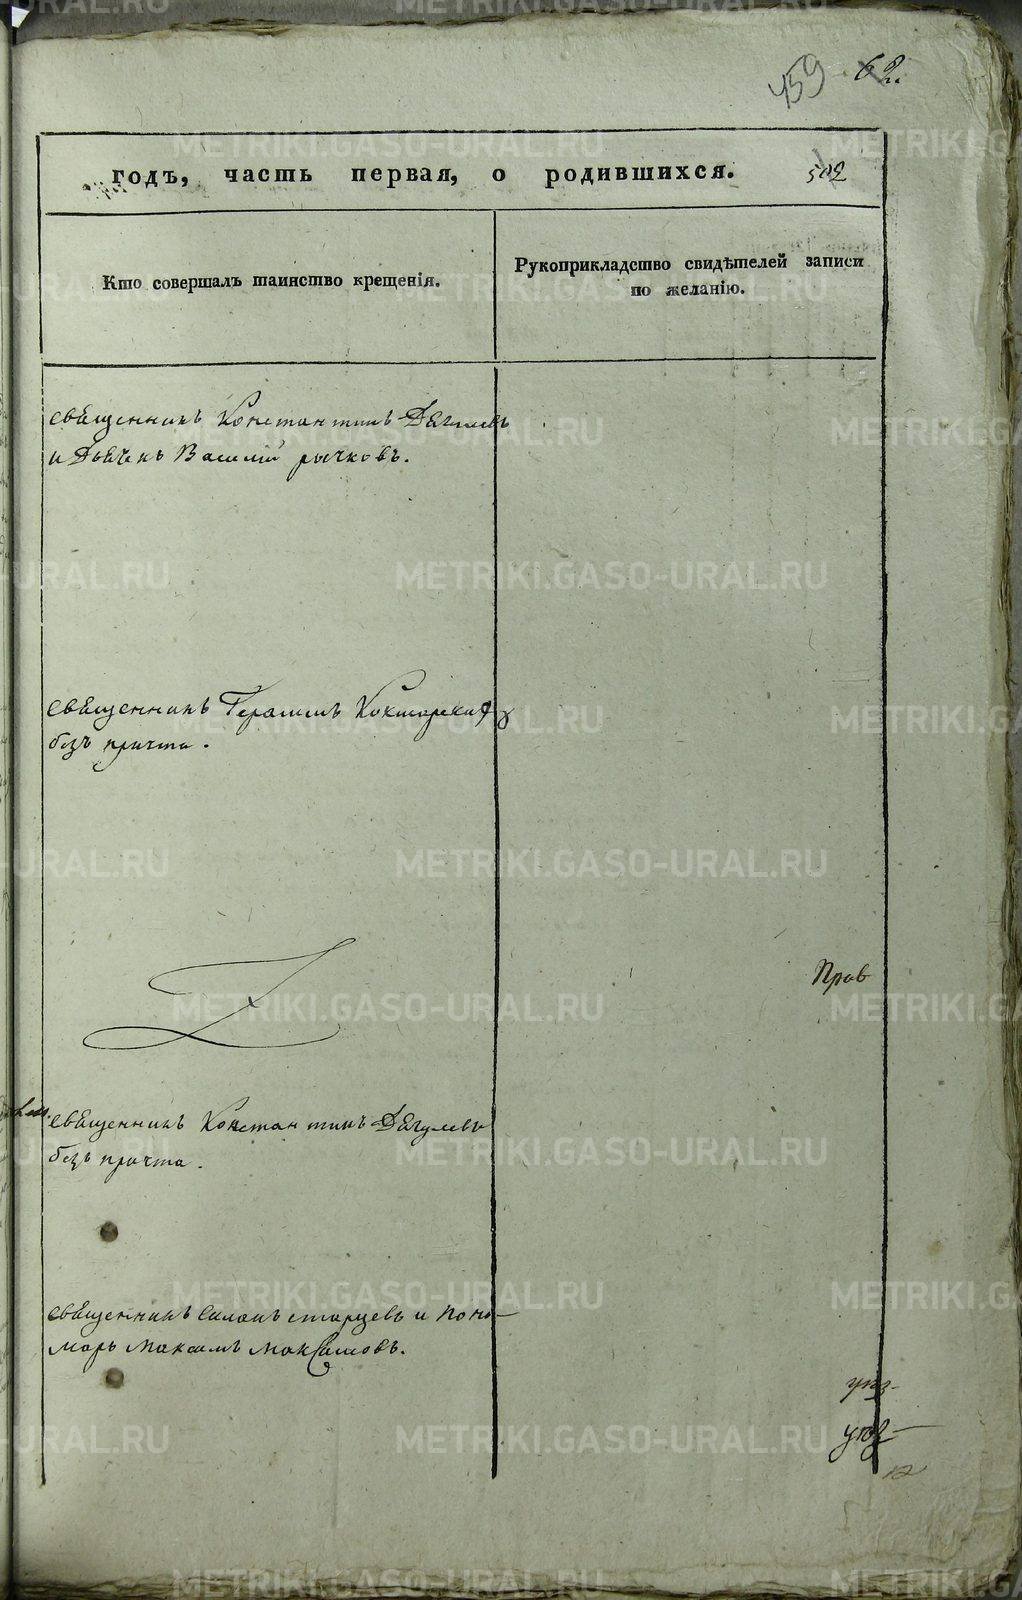 459 62.
годъ, часть первая, о родившихся. 502
Кто совершалъ таинство крещенія.
Рукоприкладство свидѣтелей записи
по желанію.
священникъ Константинъ Дягилевъ
и Дьячекъ Василій рычковъ.
священникъ Герасимъ Кокшарскій
безъ причта.
Прав
священникъ Константинъ Дягилевъ
безъ причта.
священникъ Силанъ старцевъ и поно-
марь Максимъ Максимовъ.
METRIKI.GASO-URAL.RU